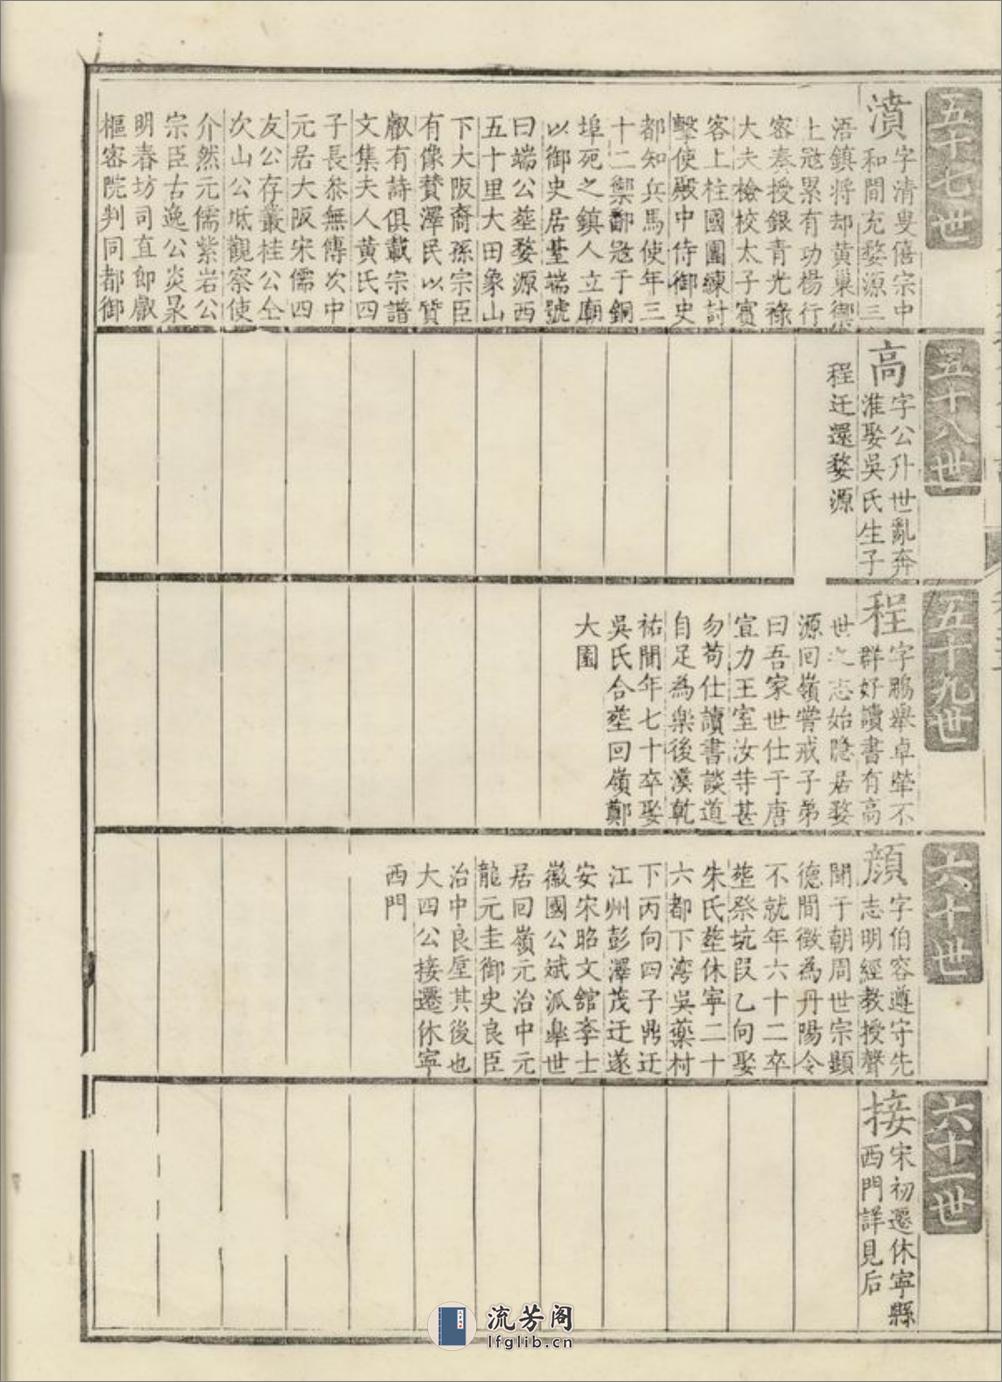 五十七世
濆
字清叟僖宗中
和間充婺源三
浯鎮将却黄巢禦
上冦累有功楊行
密奏授銀青光祿
大夫檢校太子賓
客上柱國團練討
擊使殿中侍御史
都知兵馬使年三
十二禦鄱冦于銅
埠死之鎮人立廟
以御史居䑓端號
曰端公塟婺源西
五十里大田象山
下大阪裔孫宗臣
有像賛澤民以贊
獻有詩俱載宗譜
文集夫人黄氏四
子長叅無傳次中
元居大阪宋儒四
友公存叢桂公仝
次山公坻觀察使
介然元儒紫岩公
宗臣古逸公炎㫤
明春坊司直郎獻
樞密院判同都御
五十八世
高
字公升世亂奔
淮娶吳氏生子
程迁還婺源
五十九世
程
字鵬舉卓犖不
群好讀書有高
世之志始隐居婺
源回嶺甞戒子弟
曰吾家世仕于唐
宣力王室汝䒭甚
勿苟仕讀書談道
自足為樂後漢乾
祐間年七十卒娶
吳氏合塟回嶺鄭
大園
六十世
顔
字伯容遵守先
志明經教授聲
聞于朝周世宗顯
德間徴為丹陽令
不就年六十二卒
塟祭坑段乙向娶
朱氏塟休寧二十
六都下湾吳藥村
下丙向四子鼎迁
江州彭澤茂迁遂
安宋昭文舘李士
徽國公斌派阜世
居回嶺元治中元
龍元圭御史良臣
治中良垕其後也
大四公接遷休寧
西門
六十一世
接
宋初遷休寧縣
西門詳見后
流芳阁
lfglib.cn